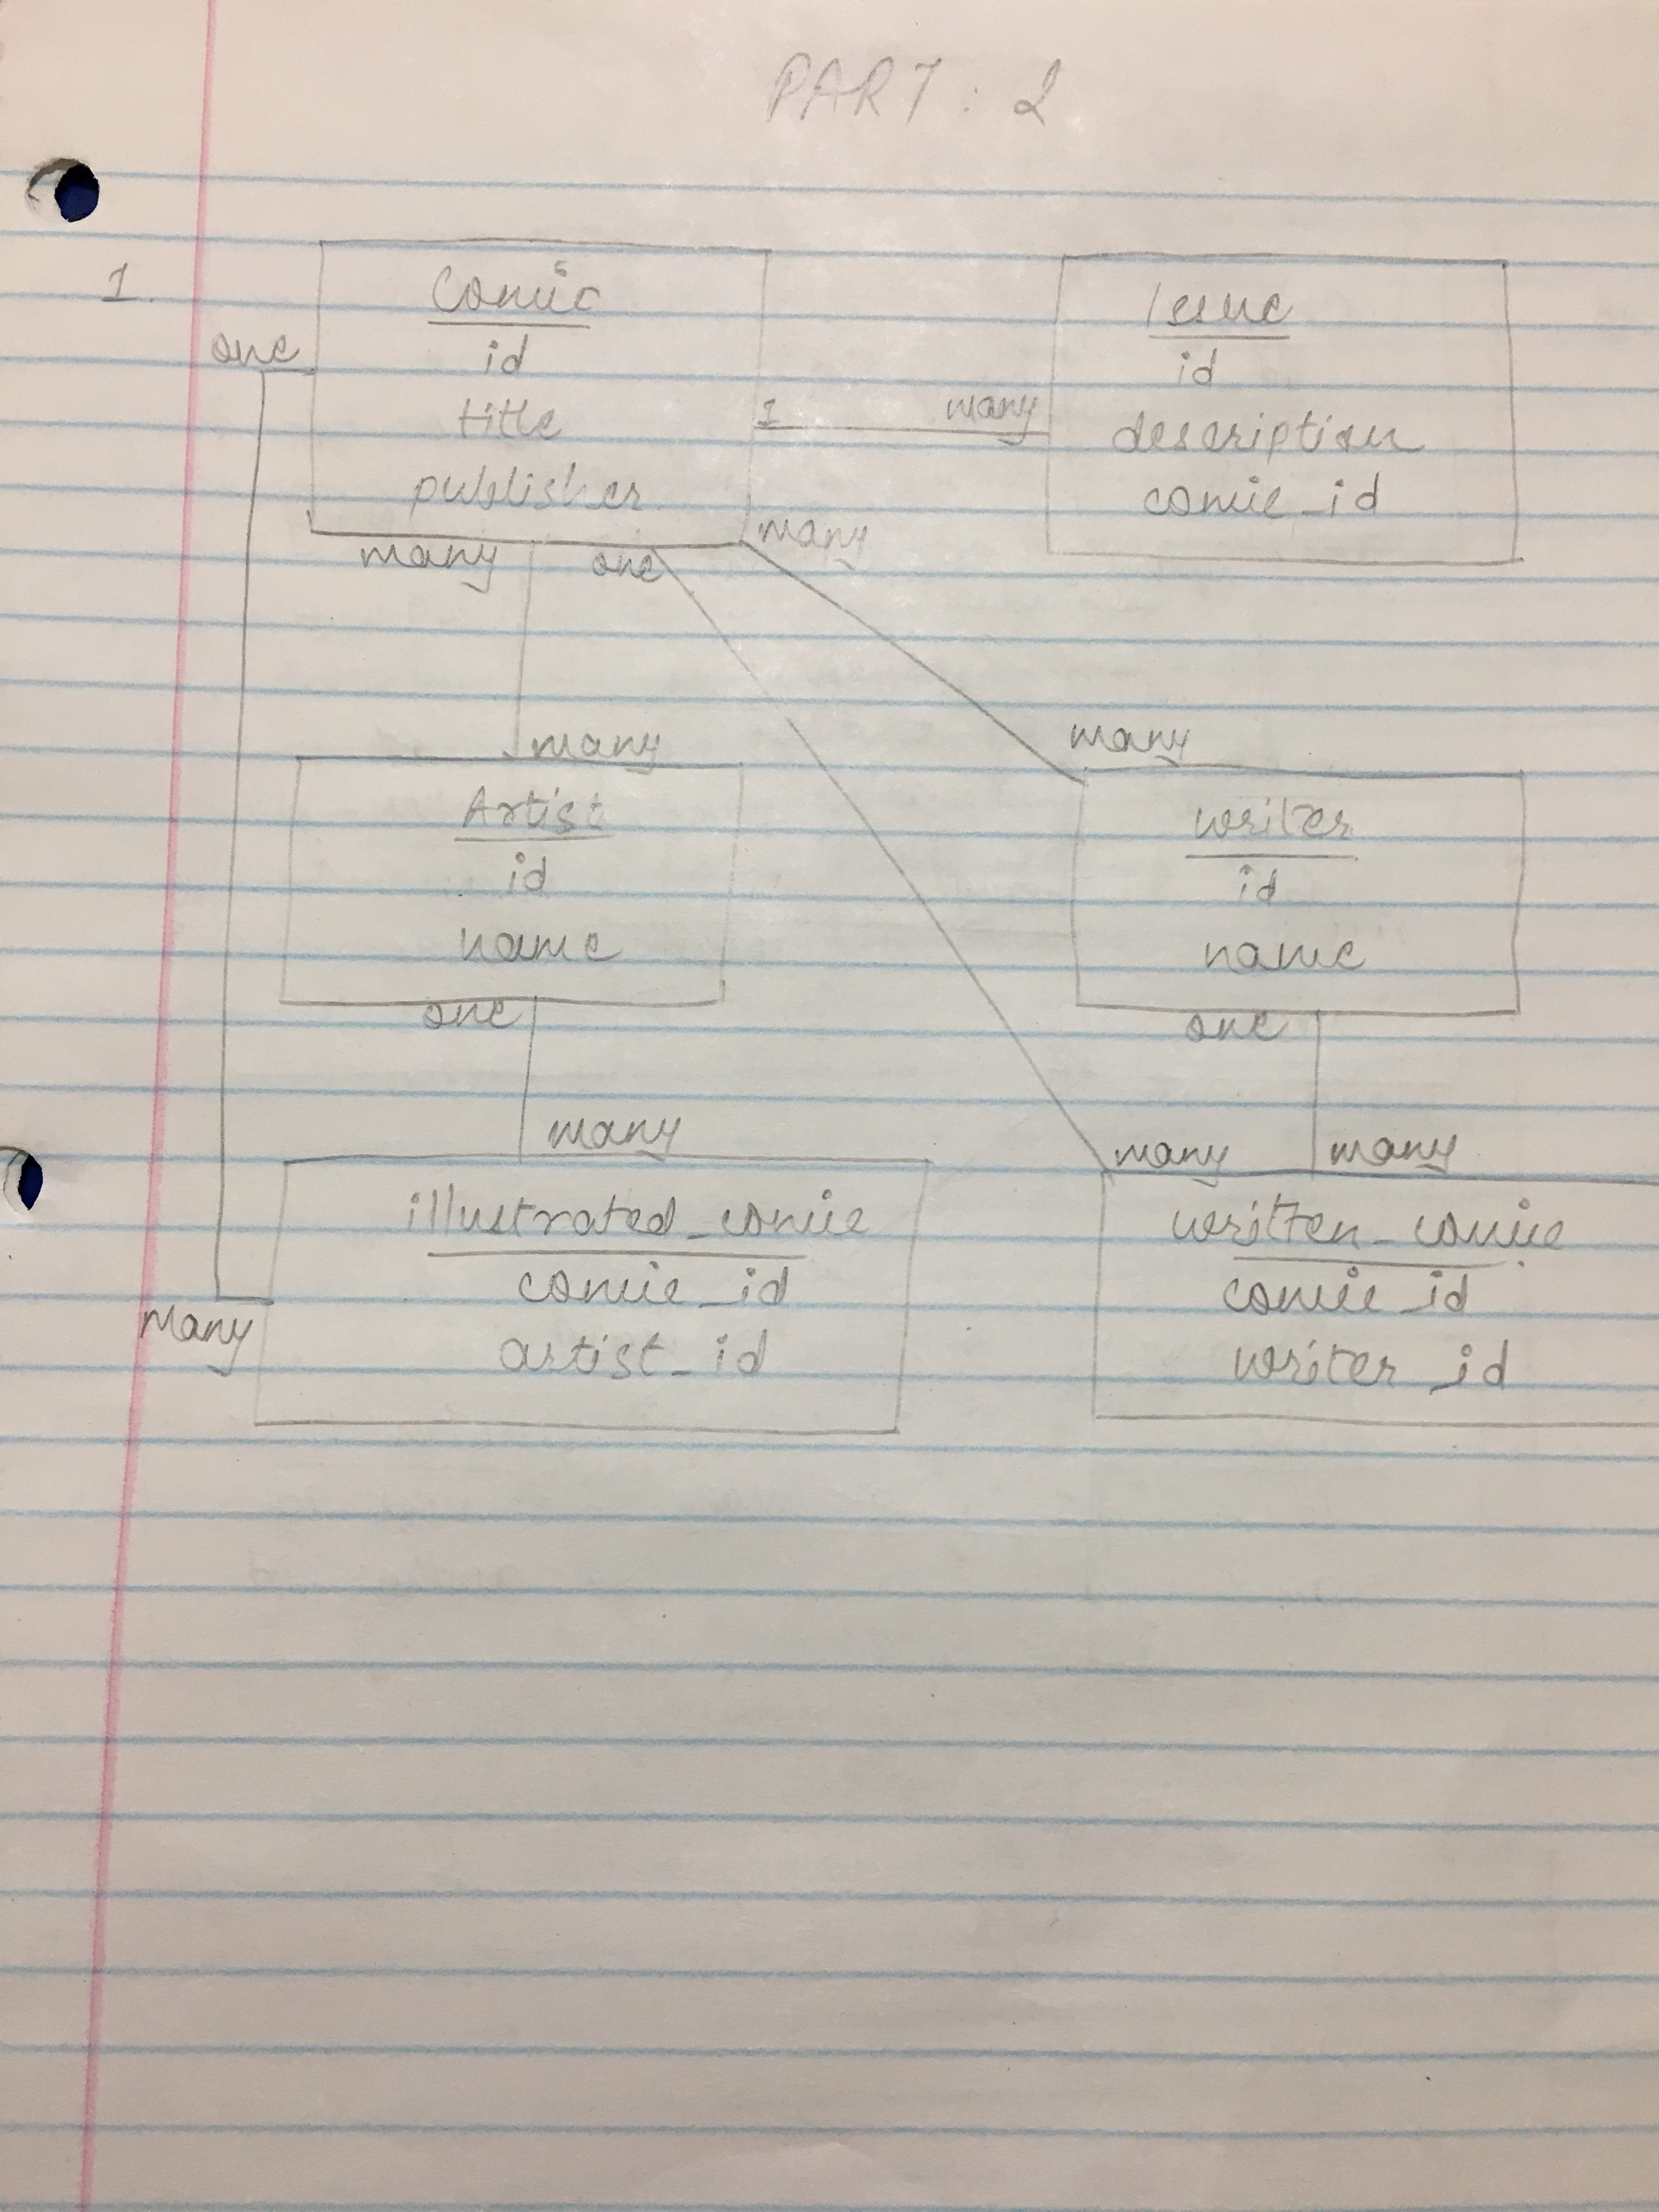 PART : 2
1.
Comic
id
title
publisher
one
1 many
Issue
id
description
comic_id
many one many
many
many
Artist
id
name
writer
id
name
one
one
many
many many
illustrated_comic
comic_id
artist_id
many
written_comic
comic_id
writer_id